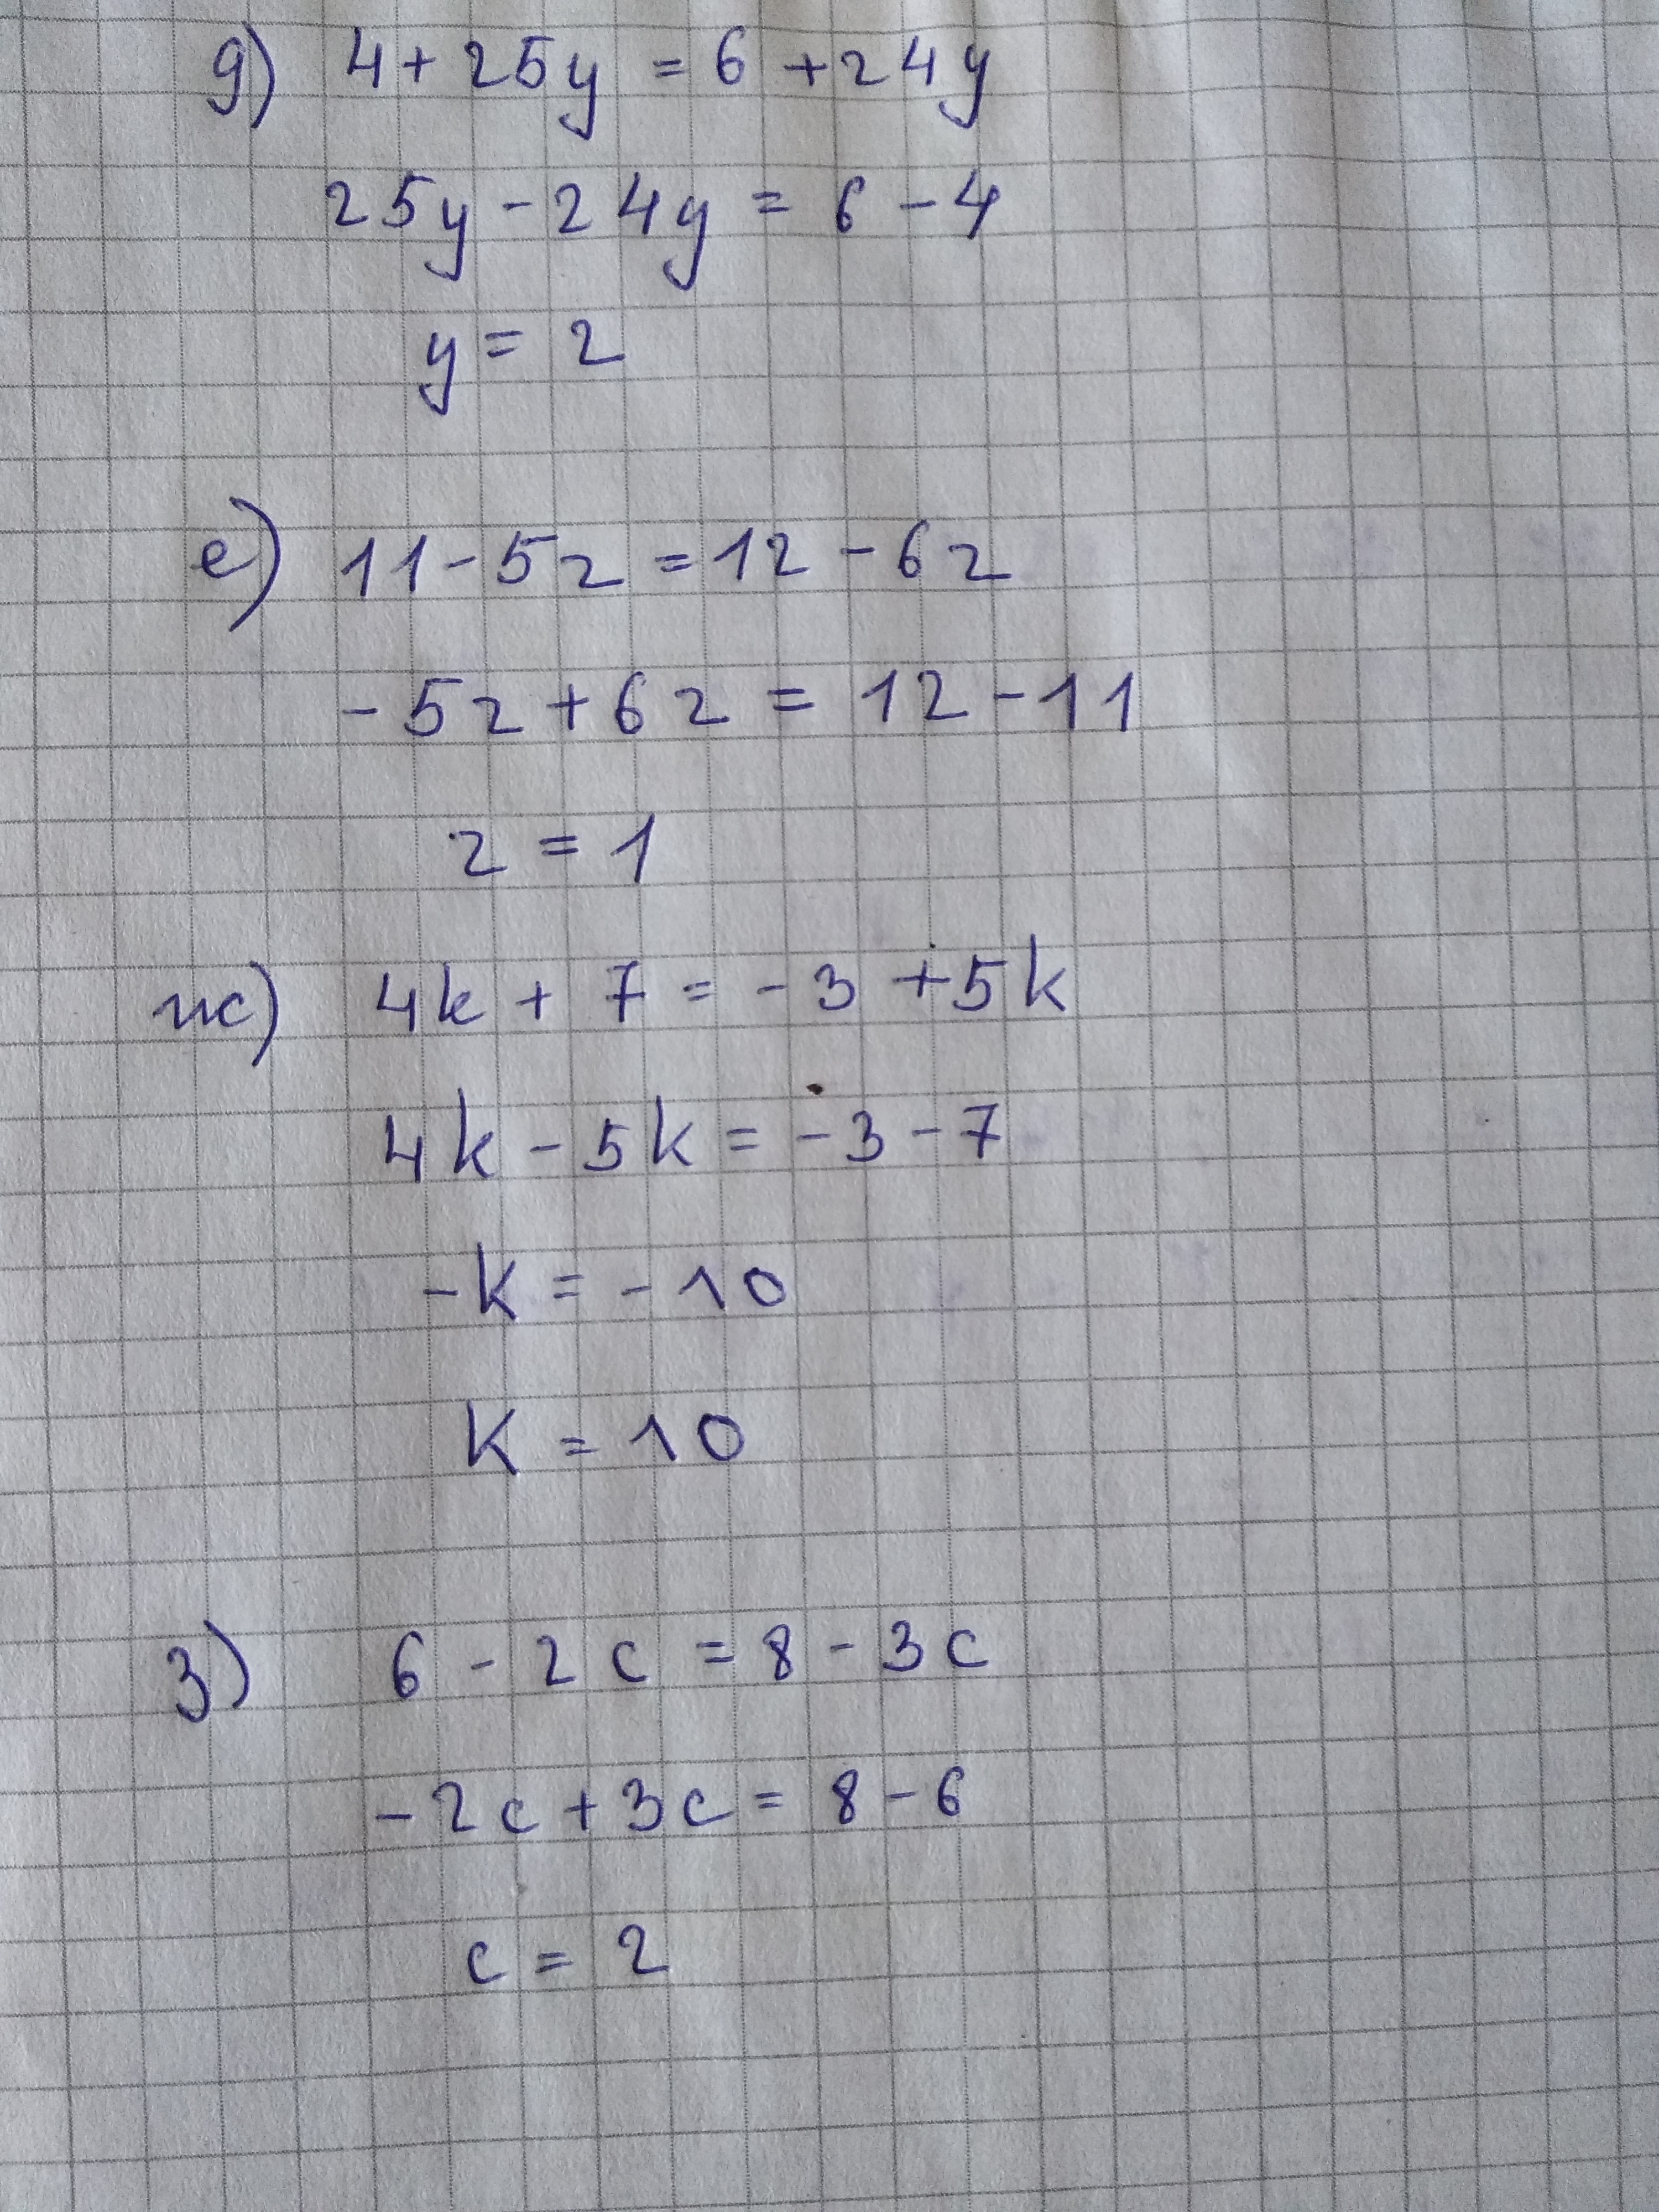 д) 4 + 25y = 6 + 24y
25y - 24y = 6 - 4
y = 2
е) 11 - 5z = 12 - 6z
- 5z + 6z = 12 - 11
z = 1
ж) 4k + 7 = - 3 + 5k
4k - 5k = - 3 - 7
- k = - 10
k = 10
з) 6 - 2c = 8 - 3c
- 2c + 3c = 8 - 6
c = 2